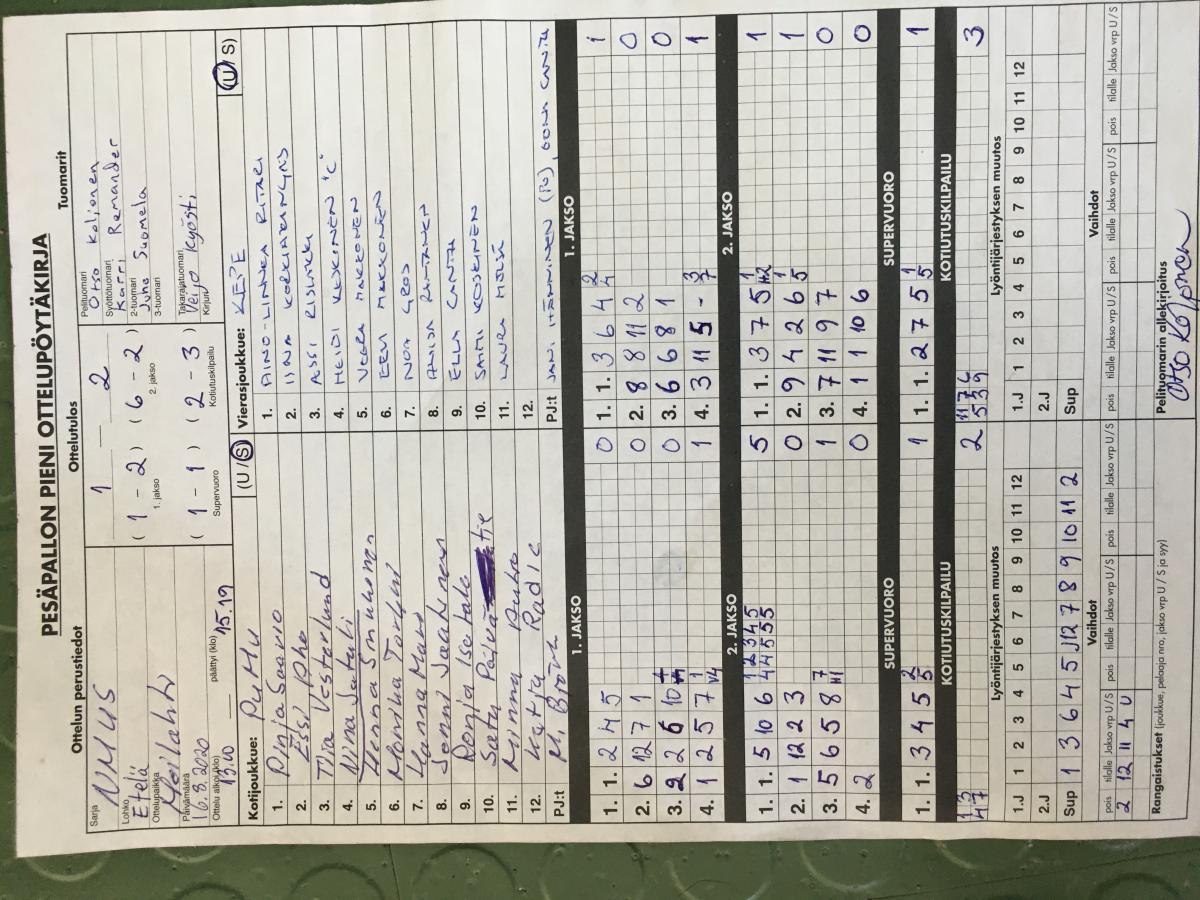 PESÄPALLON PIENI OTTELUPÖYTÄKIRJA
Ottelun perustiedot
Ottelutulos
Tuomarit
Sarja
NMUS
Lohko
Etelä
Ottelupaikka
Meilahti
Päivämäärä
16.8.2020
Ottelu alkoi (klo)
13.00
päättyi (klo) 15.19
1 2
( 1 - 2 ) ( 6 - 2 )
1. jakso 2. jakso
( 1 - 1 ) ( 2 - 3 )
Supervuoro Kotiutuskilpailu
Pelituomari
Otso Koljonen
Syöttötuomari
Karri Remander
2-tuomari
Juho Suomela
3-tuomari
Takarajatuomari
Kirjuri Veijo Kyösti
Kotijoukkue: PuMu (U / S)
1. Pinja Saario
2. Essi
3. Tiia Vesterlund
4. Nina
5. Henna
6. Monika
7. Hanna
8. Jonni
9. Ronja
10. Satu
11. Minna
12. Katja Radic
PJ:t M. Björk
Vierasjoukkue: KEPE (U / S)
1. AINO-LINNEA RITARI
2. IINA
3. ASSI
4. HEIDI KOSKINEN "C"
5. VEERA MAKKONEN
6. EEVI MAKKONEN
7. NOA
8. RANTANEN
9. ELLA CANTH
10. SAIMI KOSKINEN
11. LAURA
12.
PJ:t JANI (PJ), JONNA CANTH
1. JAKSO 1. JAKSO
1. 1. 2 4 5 0
2. 6 12 7 1 0
3. 2 2 6 10 0
4. 1 2 5 7 1
1. 1. 3 6 4 2 4 1
2. 8 8 11 2 0
3. 6 6 8 1 0
4. 3 11 5 - 3 7 1
2. JAKSO 2. JAKSO
1. 1. 5 10 6 1 2 3 4 5 4 4 5 5 5 5
2. 1 12 2 3 0
3. 5 6 5 8 7 1
4. 2 0
1. 1. 3 7 5 1 1
2. 9 4 2 6 1 5 1
3. 7 11 9 7 0
4. 1 1 10 6 0
SUPERVUORO SUPERVUORO
1. 1. 3 4 5 2 5 1
1. 1. 2 7 5 1 5 1
KOTIUTUSKILPAILU KOTIUTUSKILPAILU
1 3 2
4 7
11 7 6 3
5 3 9
Lyöntijärjestyksen muutos Lyöntijärjestyksen muutos
1 2 3 4 5 6 7 8 9 10 11 12
1.J
2.J
Sup 1 3 6 4 5 J 12 7 8 9 10 11 2
1 2 3 4 5 6 7 8 9 10 11 12
1.J
2.J
Sup
Vaihdot Vaihdot
pois tilalle Jakso vrp U / S pois tilalle Jakso vrp U / S pois tilalle Jakso vrp U / S
2 12 11 4 U
pois tilalle Jakso vrp U / S pois tilalle Jakso vrp U / S pois tilalle Jakso vrp U / S
Rangaistukset (joukkue, pelaaja nro, jakso vrp U / S ja syy)
Pelituomarin allekirjoitus
Otso Koljonen